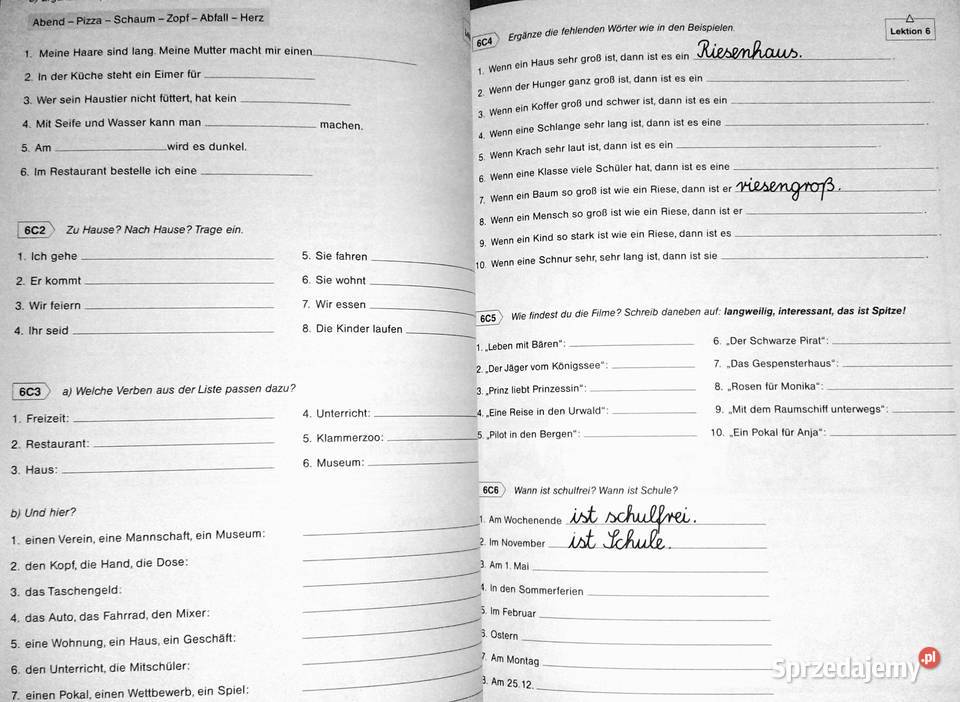 Abend – Pizza – Schaum – Zopf – Abfall – Herz
1. Meine Haare sind lang. Meine Mutter macht mir einen
2. In der Küche steht ein Eimer für
3. Wer sein Haustier nicht füttert, hat kein
4. Mit Seife und Wasser kann man machen.
5. Am wird es dunkel.
6. Im Restaurant bestelle ich eine
6C2 Zu Hause? Nach Hause? Trage ein.
1. Ich gehe
2. Er kommt
3. Wir feiern
4. Ihr seid
5. Sie fahren
6. Sie wohnt
7. Wir essen
8. Die Kinder laufen
6C3 a) Welche Verben aus der Liste passen dazu?
1. Freizeit:
2. Restaurant:
3. Haus:
4. Unterricht:
5. Klammerzoo:
6. Museum:
b) Und hier?
1. einen Verein, eine Mannschaft, ein Museum:
2. den Kopf, die Hand, die Dose:
3. das Taschengeld:
4. das Auto, das Fahrrad, den Mixer:
5. eine Wohnung, ein Haus, ein Geschäft:
6. den Unterricht, die Mitschüler:
7. einen Pokal, einen Wettbewerb, ein Spiel:
Lektion 6
6C4 Ergänze die fehlenden Wörter wie in den Beispielen.
1. Wenn ein Haus sehr groß ist, dann ist es ein Riesenhaus.
2. Wenn der Hunger ganz groß ist, dann ist es ein
3. Wenn ein Koffer groß und schwer ist, dann ist es ein .
4. Wenn eine Schlange sehr lang ist, dann ist es eine .
5. Wenn Krach sehr laut ist, dann ist es ein .
6. Wenn eine Klasse viele Schüler hat, dann ist es eine .
7. Wenn ein Baum so groß ist wie ein Riese, dann ist er riesengroß.
8. Wenn ein Mensch so groß ist wie ein Riese, dann ist er .
9. Wenn ein Kind so stark ist wie ein Riese, dann ist es .
10. Wenn eine Schnur sehr, sehr lang ist, dann ist sie .
6C5 Wie findest du die Filme? Schreib daneben auf: langweilig, interessant, das ist Spitze!
1. „Leben mit Bären“:
2. „Der Jäger vom Königssee“:
3. „Prinz liebt Prinzessin“:
4. „Eine Reise in den Urwald“:
5. „Pilot in den Bergen“:
6. „Der Schwarze Pirat“:
7. „Das Gespensterhaus“:
8. „Rosen für Monika“:
9. „Mit dem Raumschiff unterwegs“:
10. „Ein Pokal für Anja“:
6C6 Wann ist schulfrei? Wann ist Schule?
1. Am Wochenende ist schulfrei.
2. Im November ist Schule.
3. Am 1. Mai
4. In den Sommerferien
5. Im Februar
6. Ostern
7. Am Montag
8. Am 25.12.
Sprzedajemy.pl